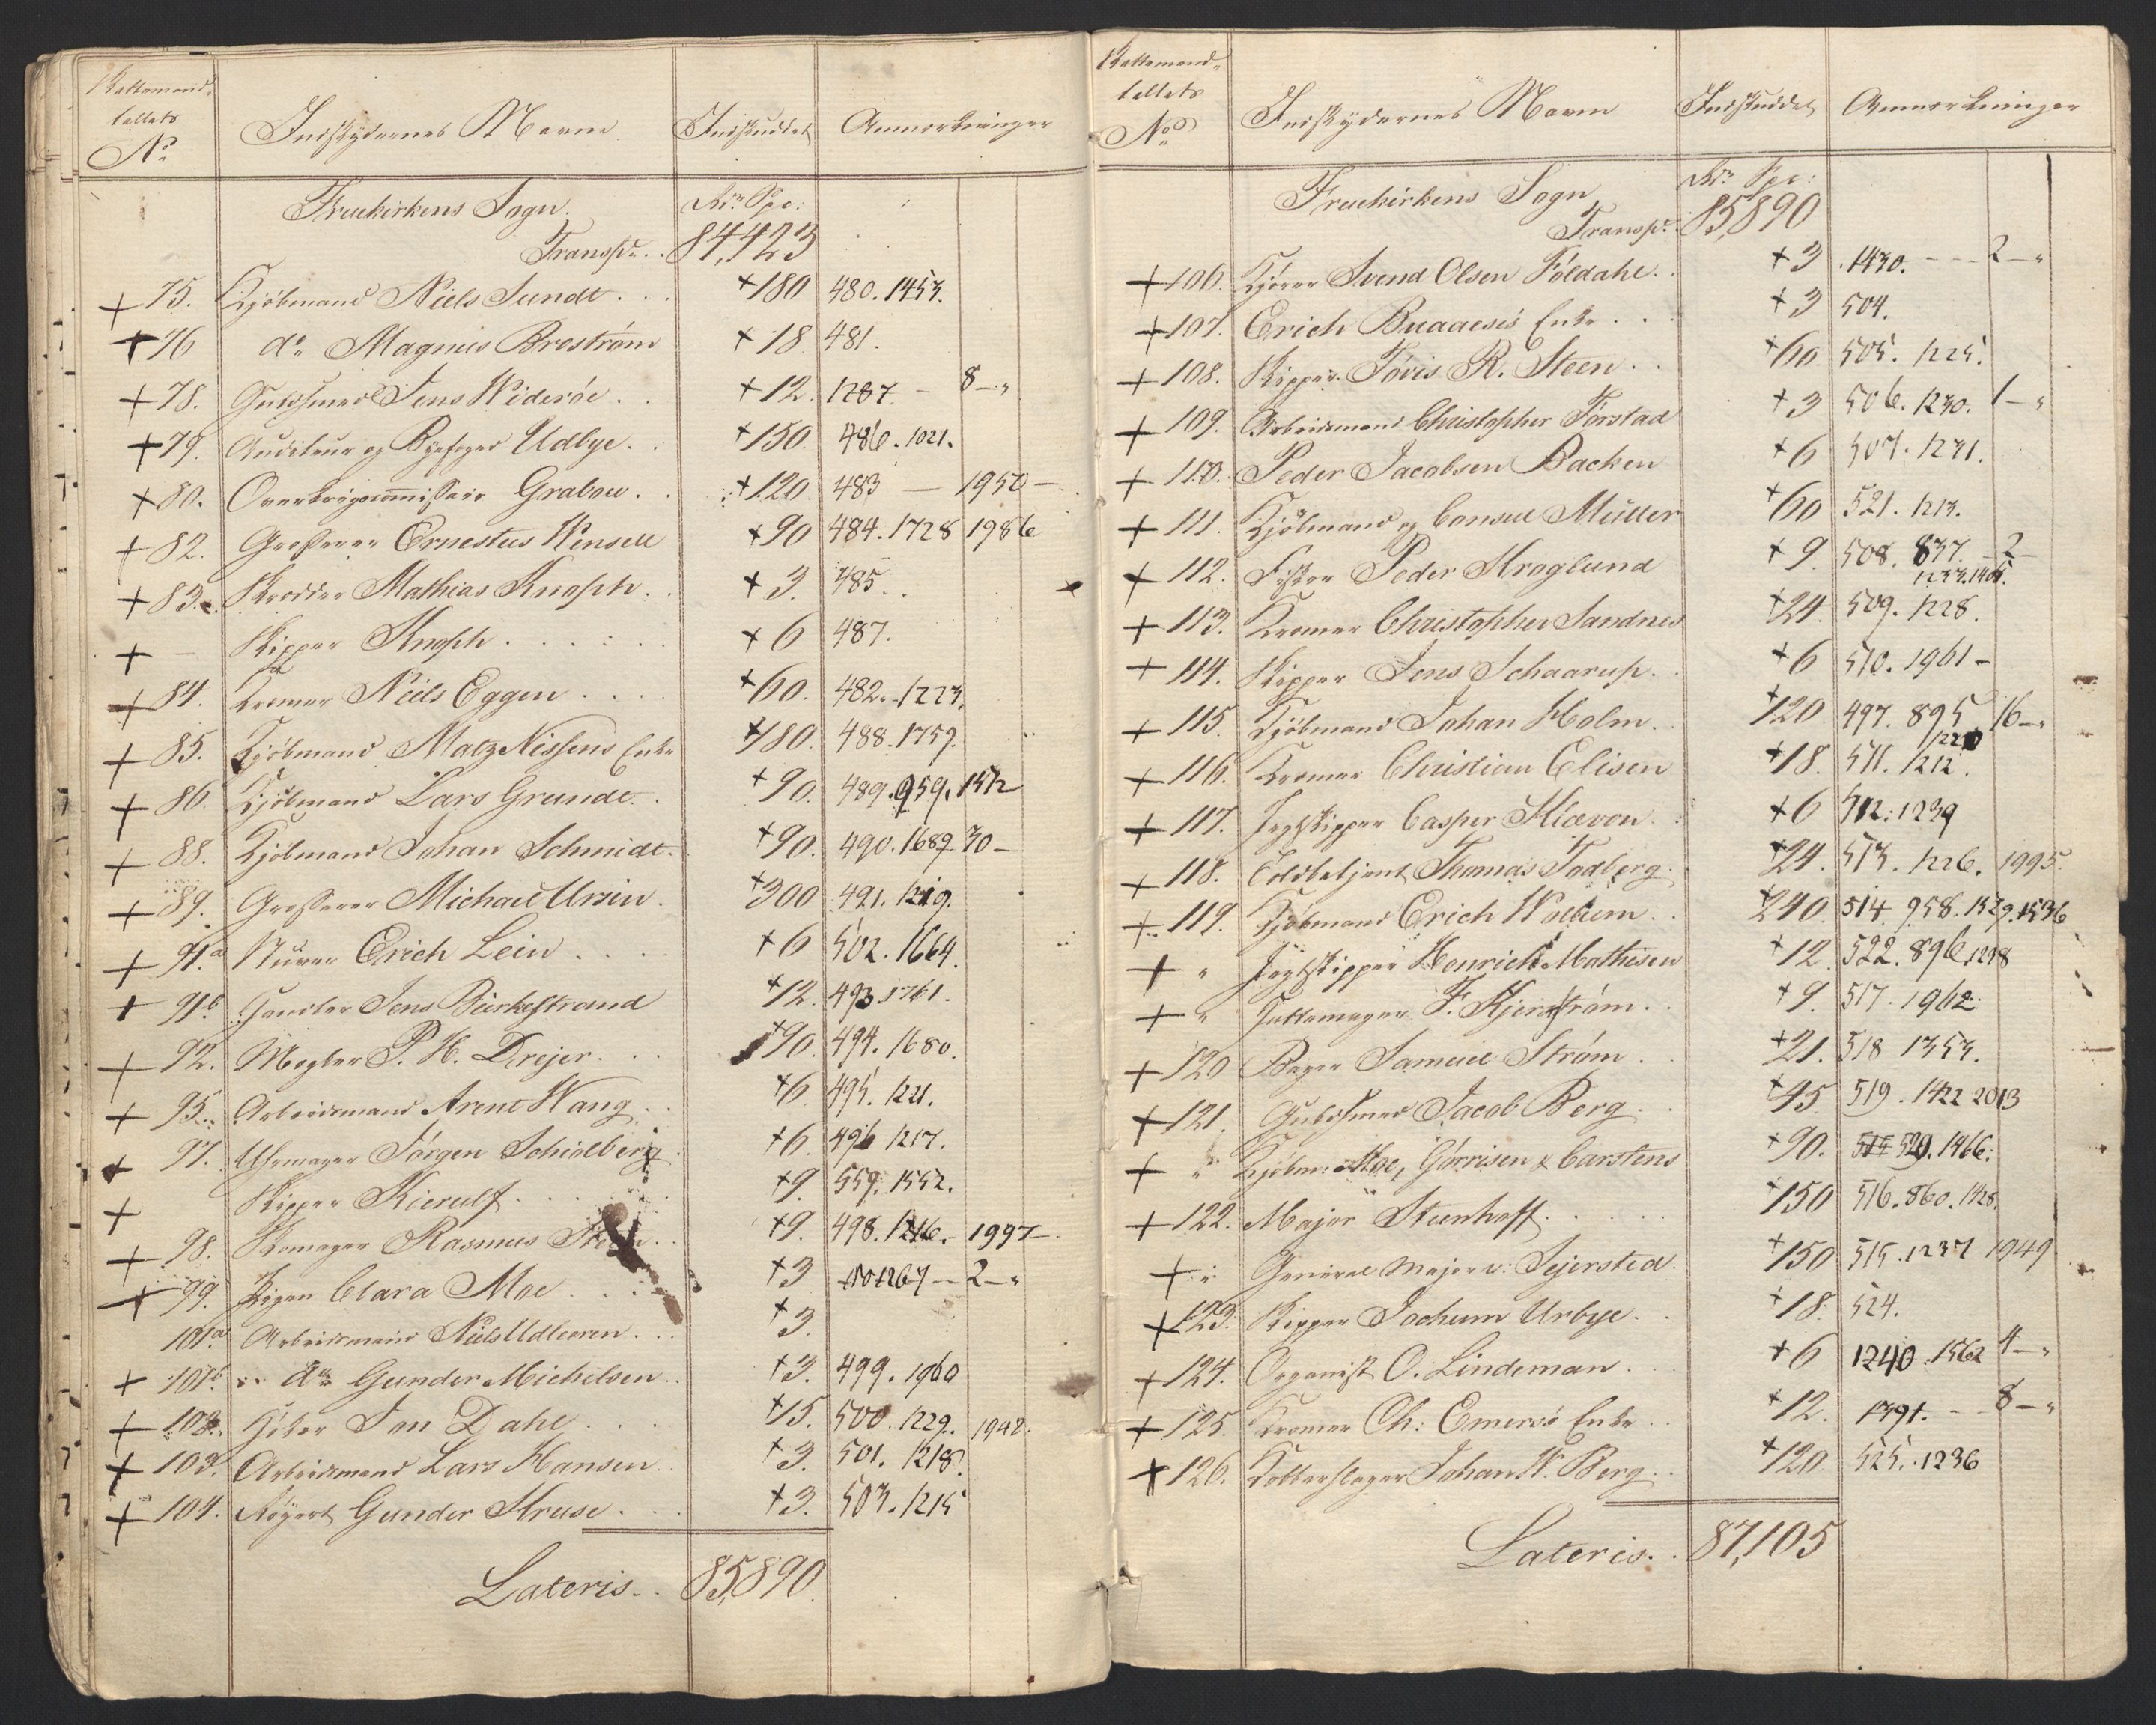 Mattemand-
tallets
No
Indskydernes Navne
Indskuddet
Anmærkninger
Fruekirkens Sogn.
Rdr Spc:
Transpt. . 84,423
+ 75. Kjöbmand Niels Sundt . . +180 480. 1453.
+ 76 do Magnus Broström +18 481.
+ 78. Guldsmed Jens Wideröe . . +12. 1287. - 8 - "
+ 79. Auditeur og Byefoged Udbye. . +150. 486. 1021.
+ 80. Overkrigscommissair Grabow. . +120 483 — 1950 —
+ 82. Grosserer Ernestus Hensell +90 484. 1728 1986
+ 83. Skrædder Mathias Knoph. . +3. 485. .
+ — Skipper Knoph . . . . +6 487.
+ 84. Kræmer Niels Eggen . . . +60. 482. 1223.
+ 85. Kjöbmand Matz Nissens Enke +180. 488. 1759.
+ 86. Kjöbmand Lars Grundt. . +90. 489. 959. 1512
+ 88. Kjöbmand Johan Schmidt. +90. 490. 1689. 30 -
+ 89. Grosserer Michael Ursin. +300 491. 1219.
+ 91.a Stuer Erich Lein . . . +6 502. 1664.
+ 91.b Handler Jens Birkestrand +12. 493. 1761.
+ 92. Mægler P. H. Drejer. . . +90. 494. 1680.
+ 95. Arbeidsmand Arent Wang . . +6. 495. 1221.
+ 97. Uhrmager Jörgen Schiölberg +6. 496 1217.
+ Skipper Kierulf . . . +9. 559. 1552.
+ 98. Skomager Rasmus . . +9. 498. 1216. - 1997 -
+ 99. Pigen Clara Moe . . . +3 1267 - 2 - "
101a Arbeidsmand Niels Udleeren . . . +3.
+ 101b " do Gunder Michelsen . . +3. 499. 1960
+ 102. Jon Dahl . . . +15. 500. 1229. 1948.
+ 103. Arbeidsmand Lars Hansen. . +3. 501. 1218.
+ 104. Gunder Kruse . . . +3. 503. 1215
Lateris. . 85,890.
Mattemand-
tallets
No
Indskydernes Navne
Indskuddet
Anmærkninger
Fruekirkens Sogn
Rdr Spc:
Transpt. 85,890
+ 106. Kjörer Svend Olsen Földahl. . +3 1430. - - - 2 - "
+ 107. Erich Buaaes's Enke . . . +3 504.
+ 108. Skipper Tövis R. Steen . . +60. 505. 1225.
+ 109. Arbeidsmand Christopher Forstad +3 506. 1230. 1 - "
+ 110. Peder Jacobsen Backen +6 507. 1231.
+ 111. Kjöbmand og Consul Müller +60 521. 1213.
+ 112. Fisker Peder Kroglund +9. 508. 837. - 2 -
1233. 1405.
+ 113. Kræmer Christopher Sandnes +24 509. 1228.
+ 114. Skipper Jens Schaarup. . +6 510. 1961 -
+ 115. Kjöbmand Johan Holm. . +120. 497. 895 16 - "
+ 116. Kræmer Christian Elisen +18. 511. 1212.
+ 117. Jagtskipper Casper Kiævon. +6 512. 1239
+ 118. Toldbetjent Thomas Fadberg. +24. 513. 1226. 1995.
+ 119. Kjöbmand Erich Wollum . . +240. 514. 958. 1529. 1536
+ " Jagtskipper Henrich Mathisen +12. 522. 896. 1298
+ " Hattemager F. Kjernström. . +9. 517. 1962.
+ 120 Bager Samuel Ström . . +21. 518 1353.
+ 121. Guldsmed Jacob Berg. . +45 519. 1422 2013
+ " Kjöbm: Moe, Görrisen & Carstens +90. 520. 1466.
+ 122. Major Steenhoff. . . . +150 516. 860. 1428.
+ " General Major v: Sejersted. +150 515. 1237 1949
+ 123. Skipper Jochum Urbye. . . +18. 524.
+ 124. Organist O. Lindeman . . . +6 1240. 1562 4 - "
+ 125. Kræmer Ch: Emeros's Enke . . +12. 1391. - - 8 - "
+ 126. Kobberslager Johan W. Berg . . +120 525. 1236
Lateris. . 87,105